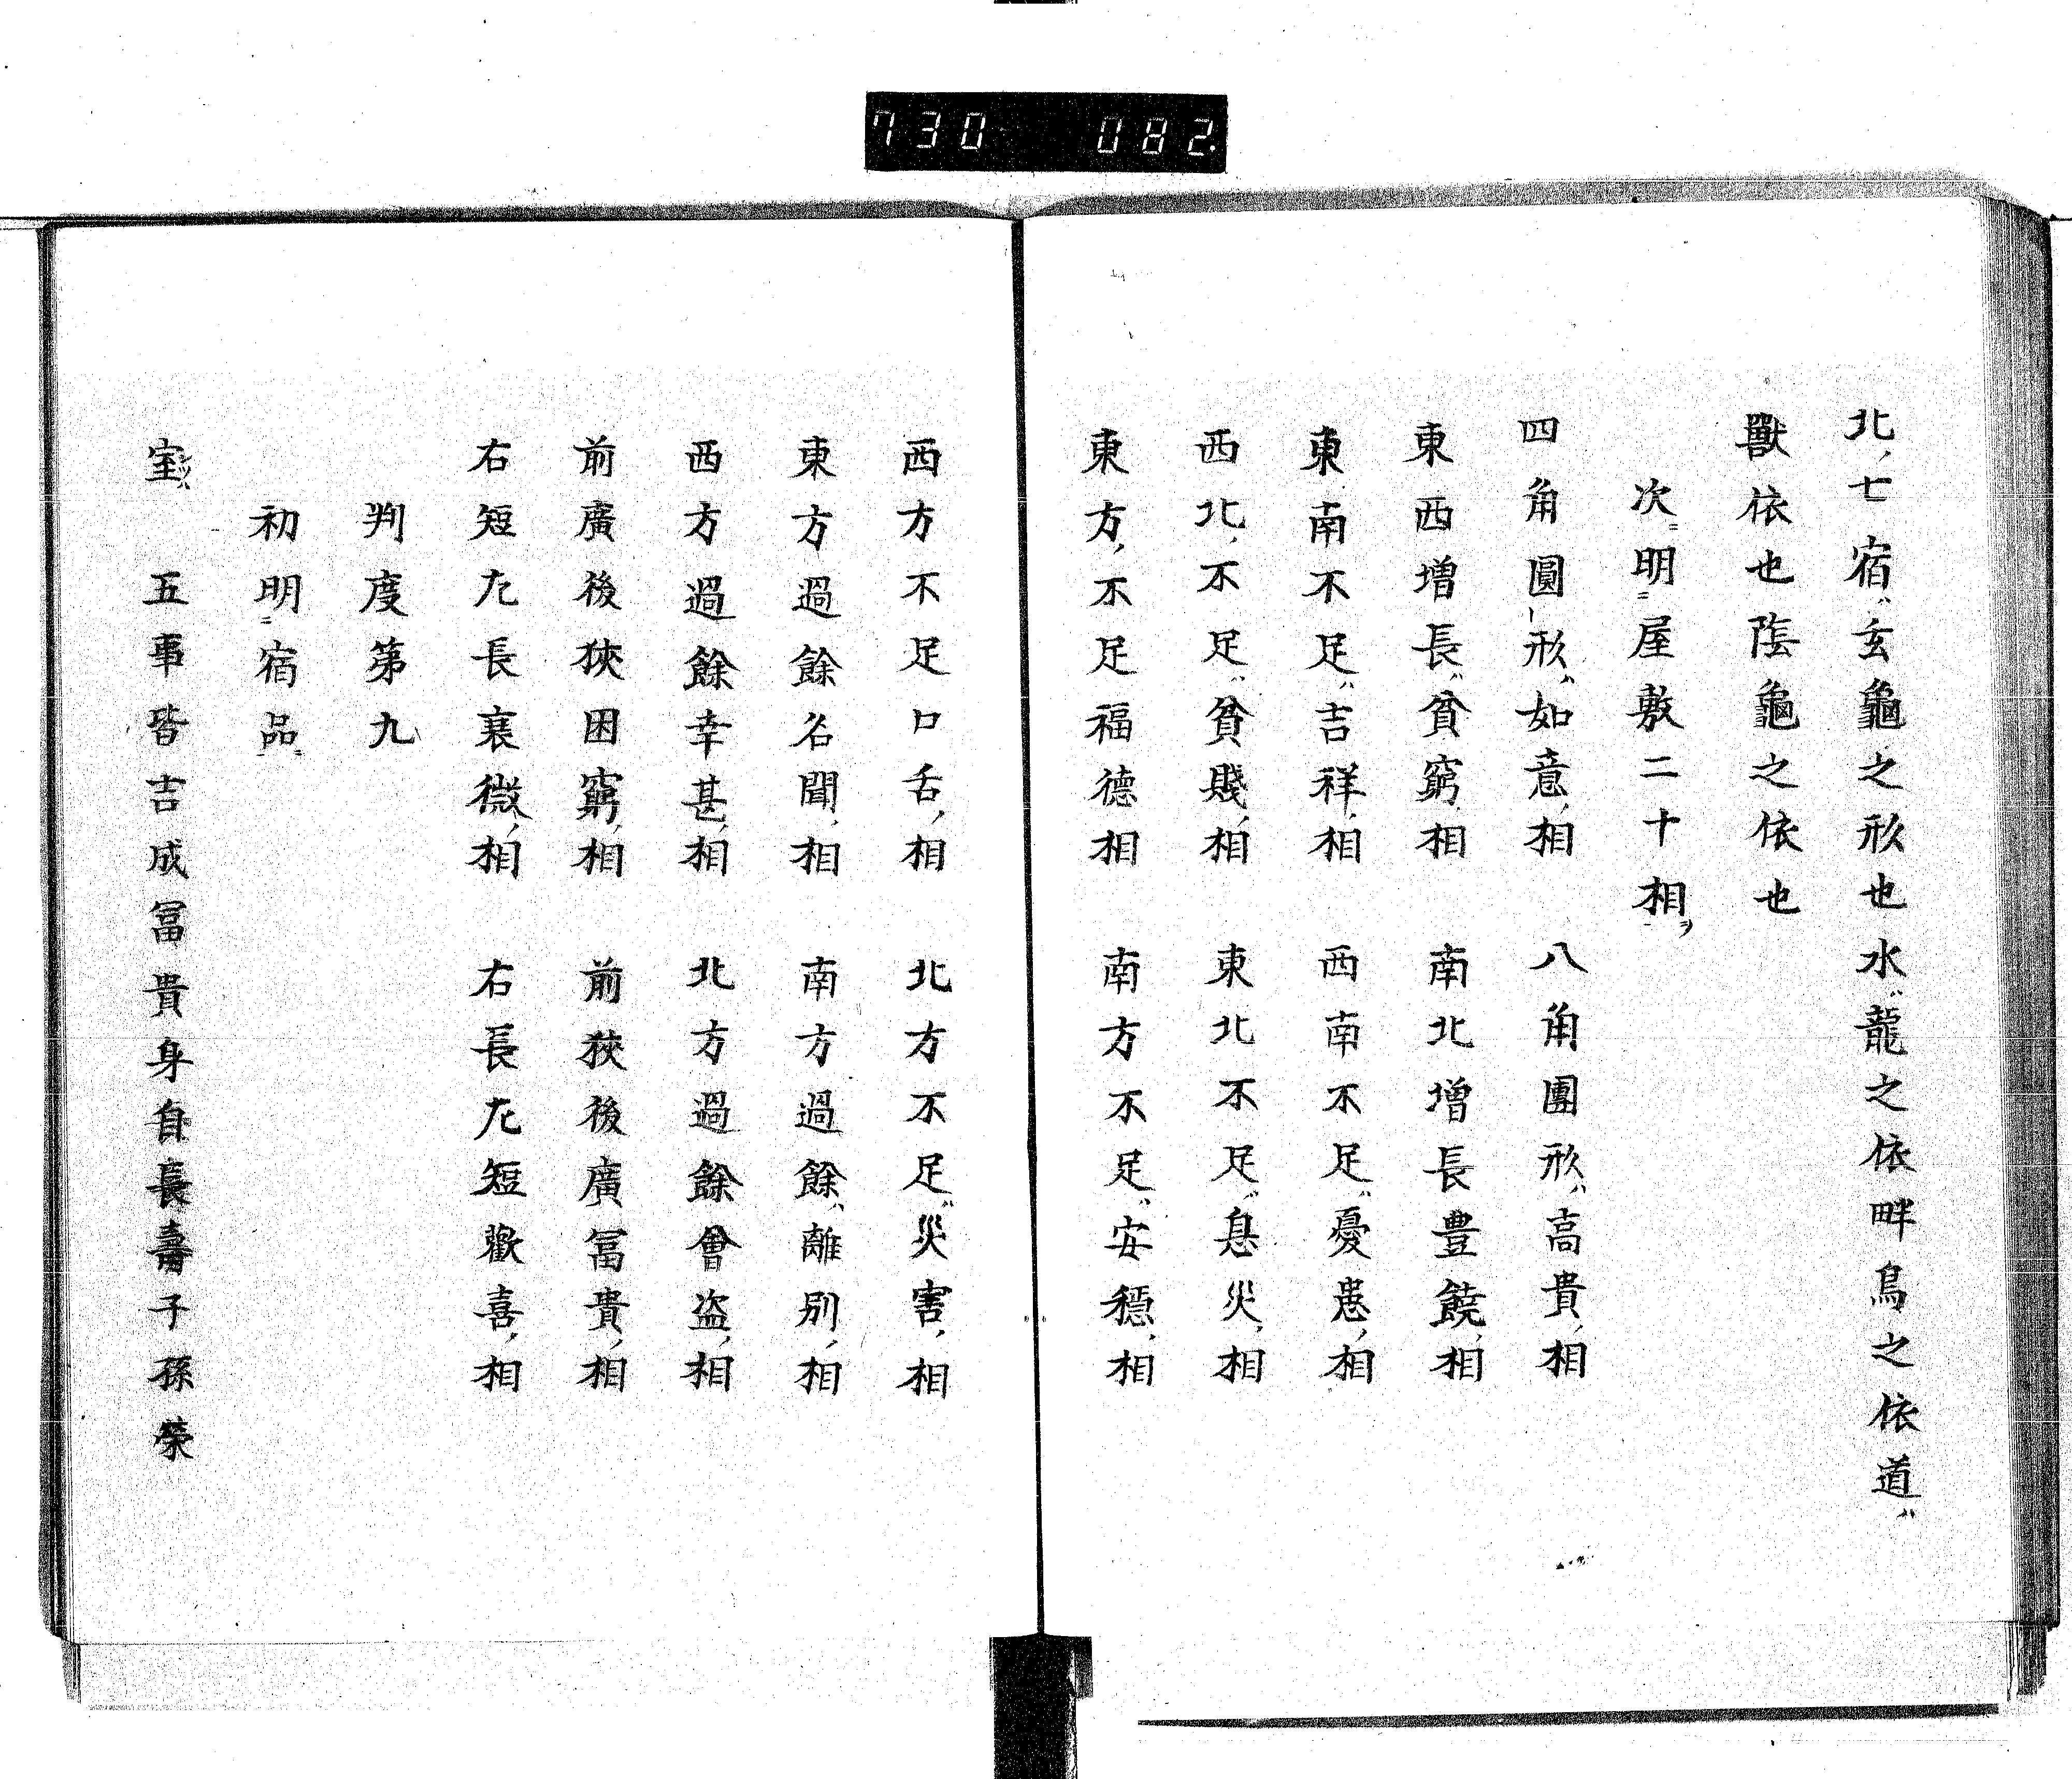 730 082.
北七宿玄龜之形也水龍之依畔鳥之依道
獸依也陰龜之依也
次明屋敷二十相
四角圓形如意相 八角團形高貴相
東西增長貧窮相 南北增長豊饒相
東南不足吉祥相 西南不足憂患相
西北不足貧賤相 東北不足息災相
東方不足福德相 南方不足安穩相
西方不足口舌相 北方不足災害相
東方過餘名聞相 南方過餘離別相
西方過餘幸甚相 北方過餘會盗相
前廣後狹困窮相 前狹後廣冨貴相
右短左長衰微相 右長左短歡喜相
判度第九
初明宿品
室 五事皆吉成冨貴身自長壽子孫榮